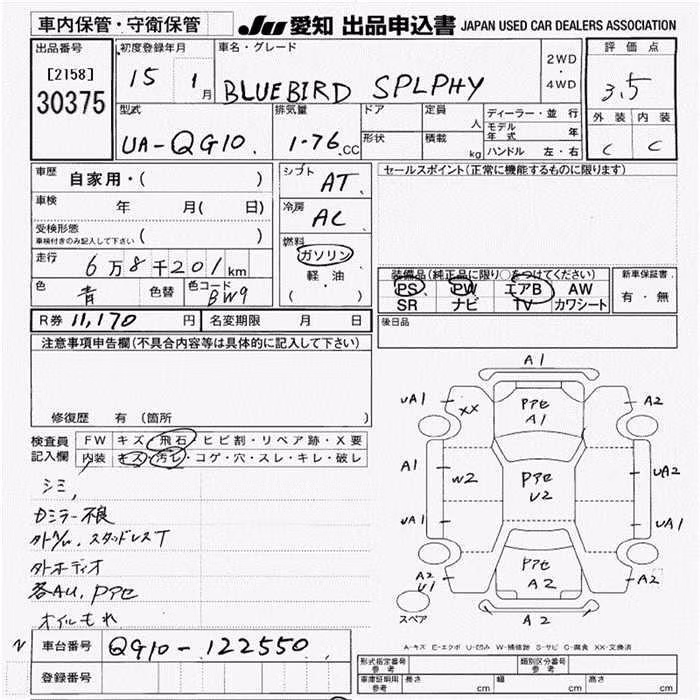 車内保管・守衛保管
JU 愛知 出品申込書 JAPAN USED CAR DEALERS ASSOCIATION
出品番号
[2158]
30375
初度登録年月
15 1月
車名・グレード
BLUEBIRD SPLPHY
2WD
・
4WD
評価点
3.5
外装 内装
C C
型式
UA-QG10
排気量
1.76 CC
ドア
形状
定員 人
積載 kg
ディーラー・並行
モデル年式 年
ハンドル 左・右
車歴 自家用・( )
車検 年 月( 日)
受検形態
車検付きのみ記入して下さい ( )
走行 6万8千201km
色 青 色替 色コード BW9
シフト AT
冷房 AC
燃料
ガソリン
軽・油
( )
セールスポイント(正常に機能するものに限ります)
装備品(純正品に限り○をつけてください)
PS PW エアB AW
SR ナビ TV カワシート
新車保証書
有・無
R券 11,170 円 名変期限 月 日
後日品
注意事項申告欄(不具合内容等は具体的に記入して下さい)
修復歴 有(箇所 )
検査員記入欄
FW キズ・飛石・ヒビ割・リペア跡・X要
内装 キズ・汚レ・コゲ・穴・スレ・キレ・破レ
シミ,
カミラー不良
外アル,スタッドレスT
外オーディオ
各AU,Pアセ
オイルもれ
A1
UA1 XX Pアセ A1 A2
A1 W2 Pアセ U2 UA2
UA1 UA1
A2 U1 Pアセ A2 A2
スペア A2
A-キズ E-エクボ U-凹み W-補修跡 S-サビ C-腐食 XX-交換済
N 車台番号 QG10-122550
登録番号
形式指定番号 参考
類別区分番号 参考
車庫証明用 参考 長さ cm 幅 cm 高さ cm